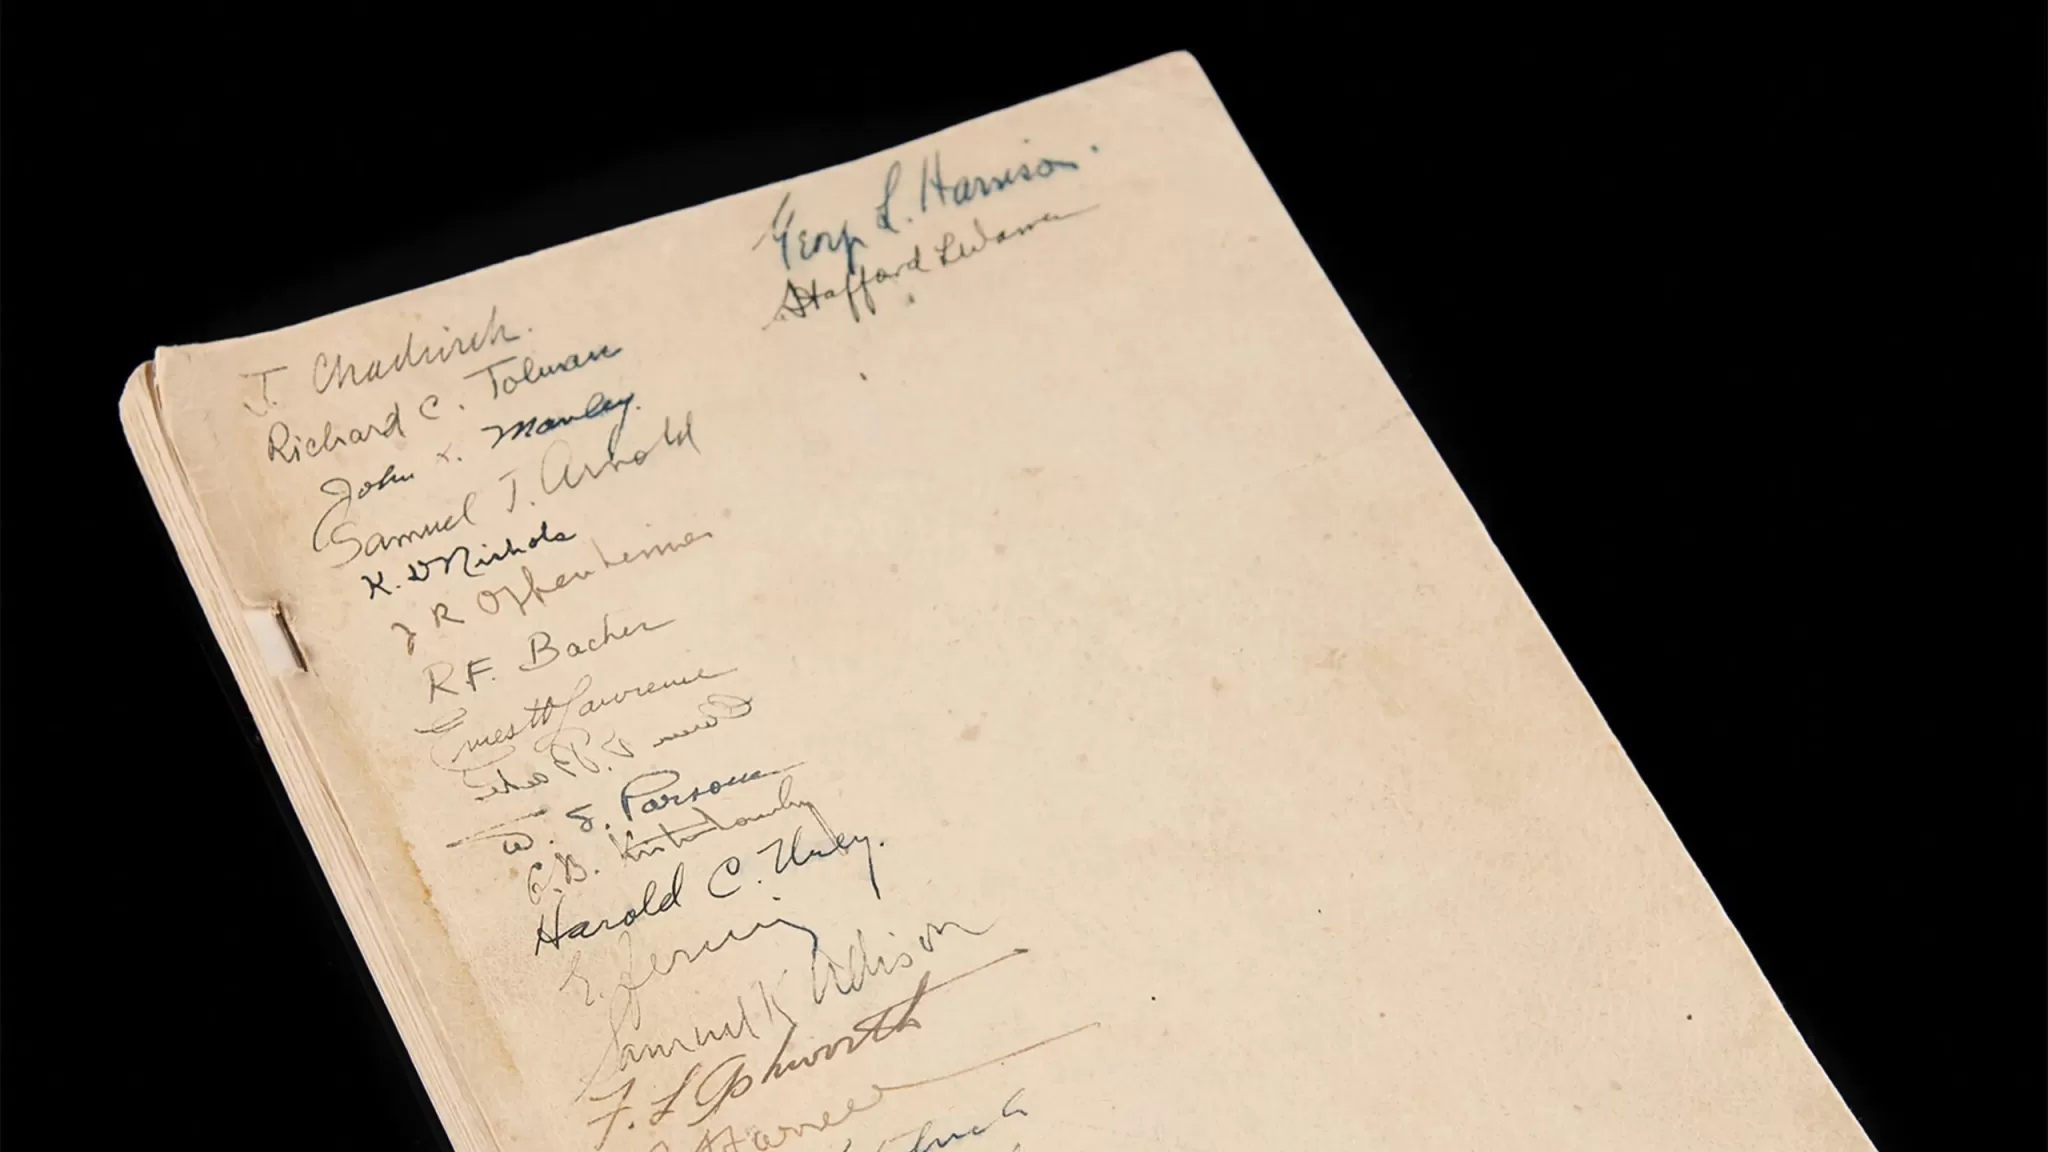 George L. Harrison.
Stafford L Warren
J. Chadwick.
Richard C. Tolman
John Manley.
Samuel T. Arnold
K. D Nichols
J R Oppenheimer
R.F. Bacher
Ernest O Lawrence
W. S. Parsons
G.B. Kistiakowsky
Harold C. Urey.
E. Fermi
Samuel K Allison
F. L Ashworth
Farrell